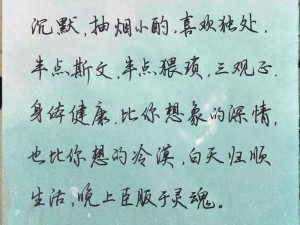 沉默,抽烟小酌,喜欢独处,
半点斯文,半点猥琐,三观正.
身体健康.比你想象的深情,
也比你想的冷漠,白天归顺
生活,晚上臣服于灵魂。